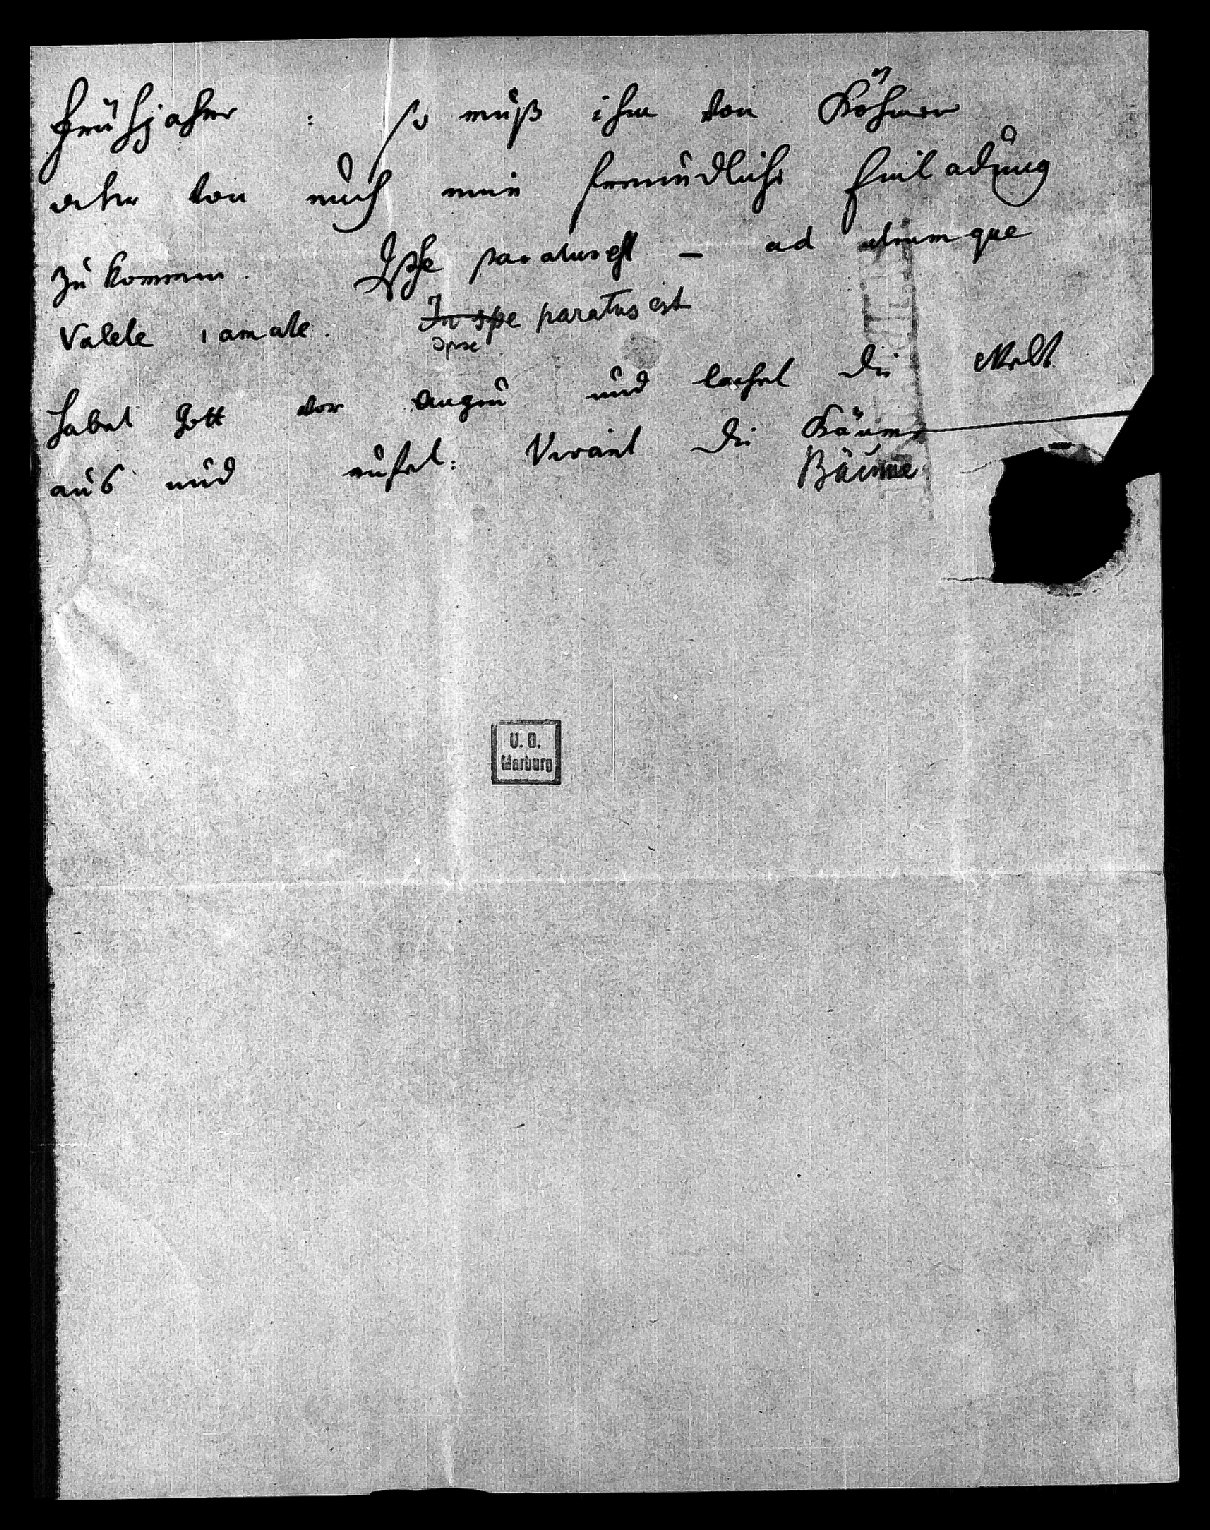 Frühjahr : so muß ihm von Böhmen
oder von mich eine freundliche Einladung
zu kommen. Ipse paratus est – ad utrumque
Valete, amate. In spe paratus est
Ipse
habet Gott vor Augen und lachet die Welt
aus und rufet: Vivant die Bäume
Bäume
U. B.
Marburg